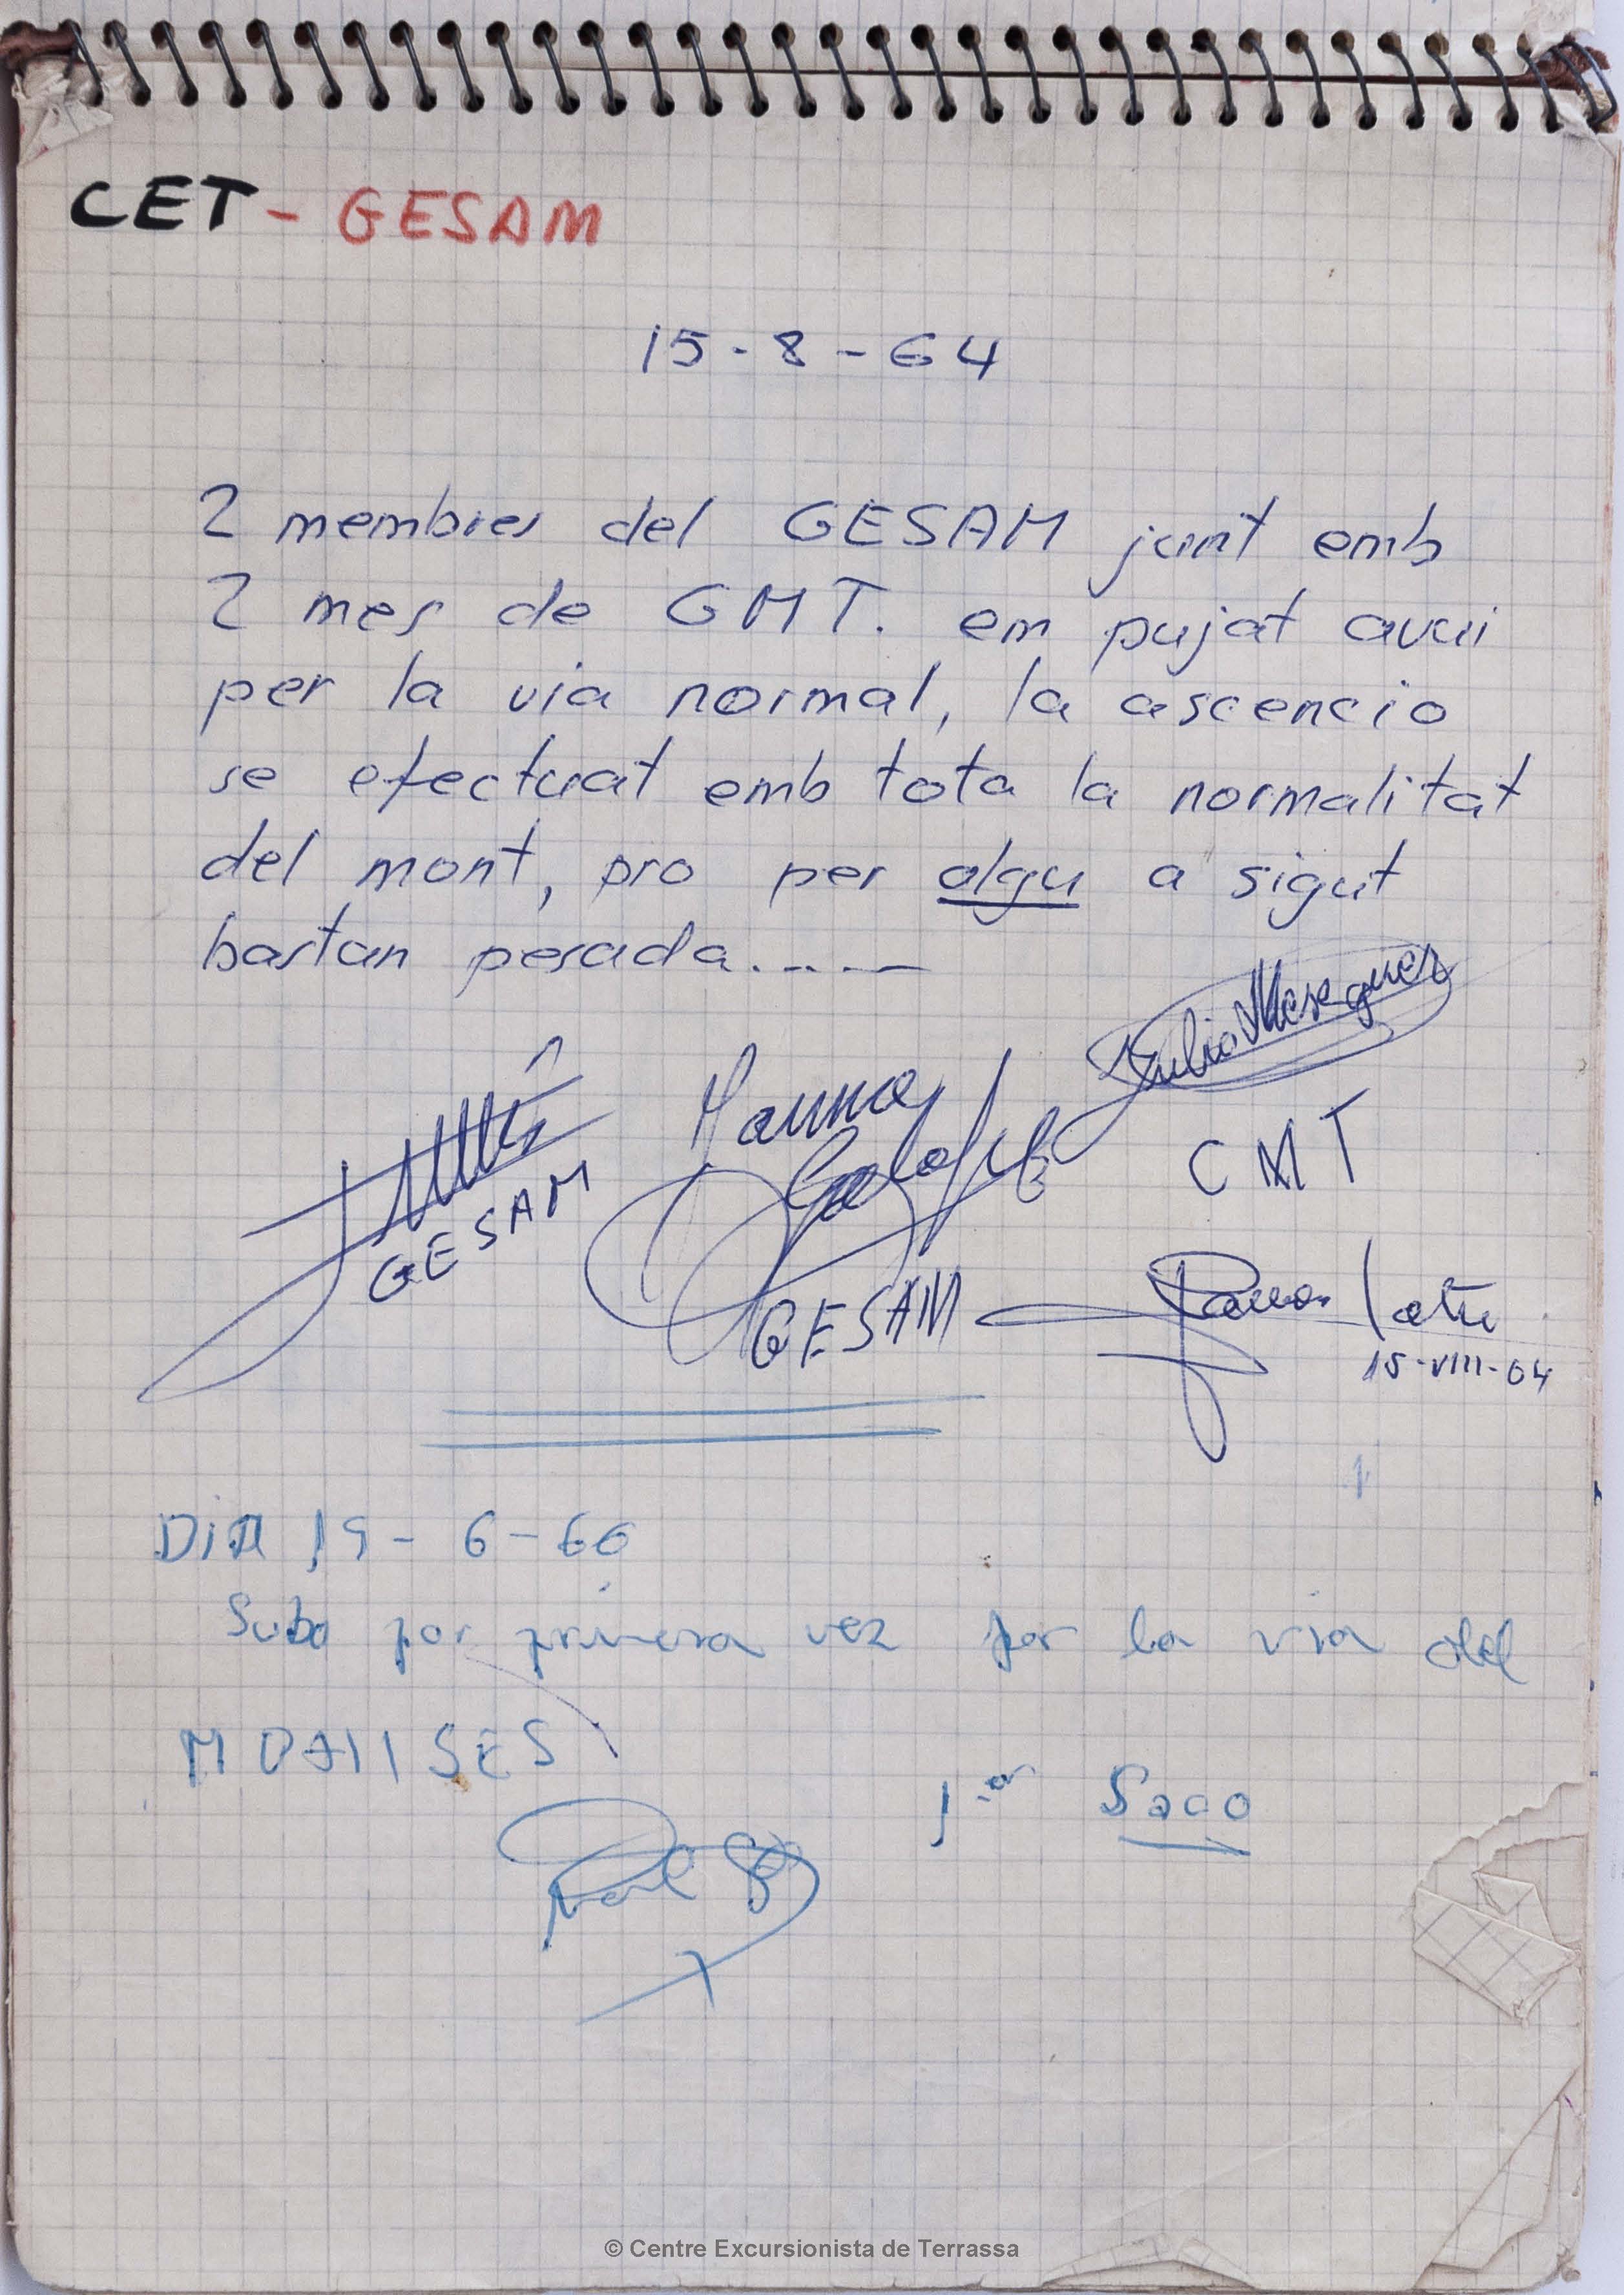 CET - GESAM
15 - 8 - 64
2 membres del GESAM junt emb
2 mes de GMT. em pujat avui
per la via normal, la ascencio
se efectuat emb tota la normalitat
del mont, pro per algu a sigut
bastan pesada.....
Julio Meseguer
GESAM
CMT
GESAM
15-VIII-64
DIA 19 - 6 - 66
Subo por primera vez por la via del
1er Saco
© Centre Excursionista de Terrassa